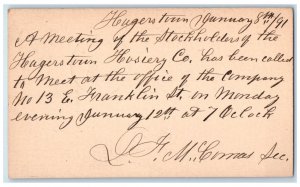 Hagerstown January 8th/91
A Meeting of the Stockholders of the
Hagerstown Hosiery Co. has been called
to Meet at the office of the Company
No 13 E. Franklin St. on Monday
evening January 12th at 7 O'clock
L. F. McComas Sec.